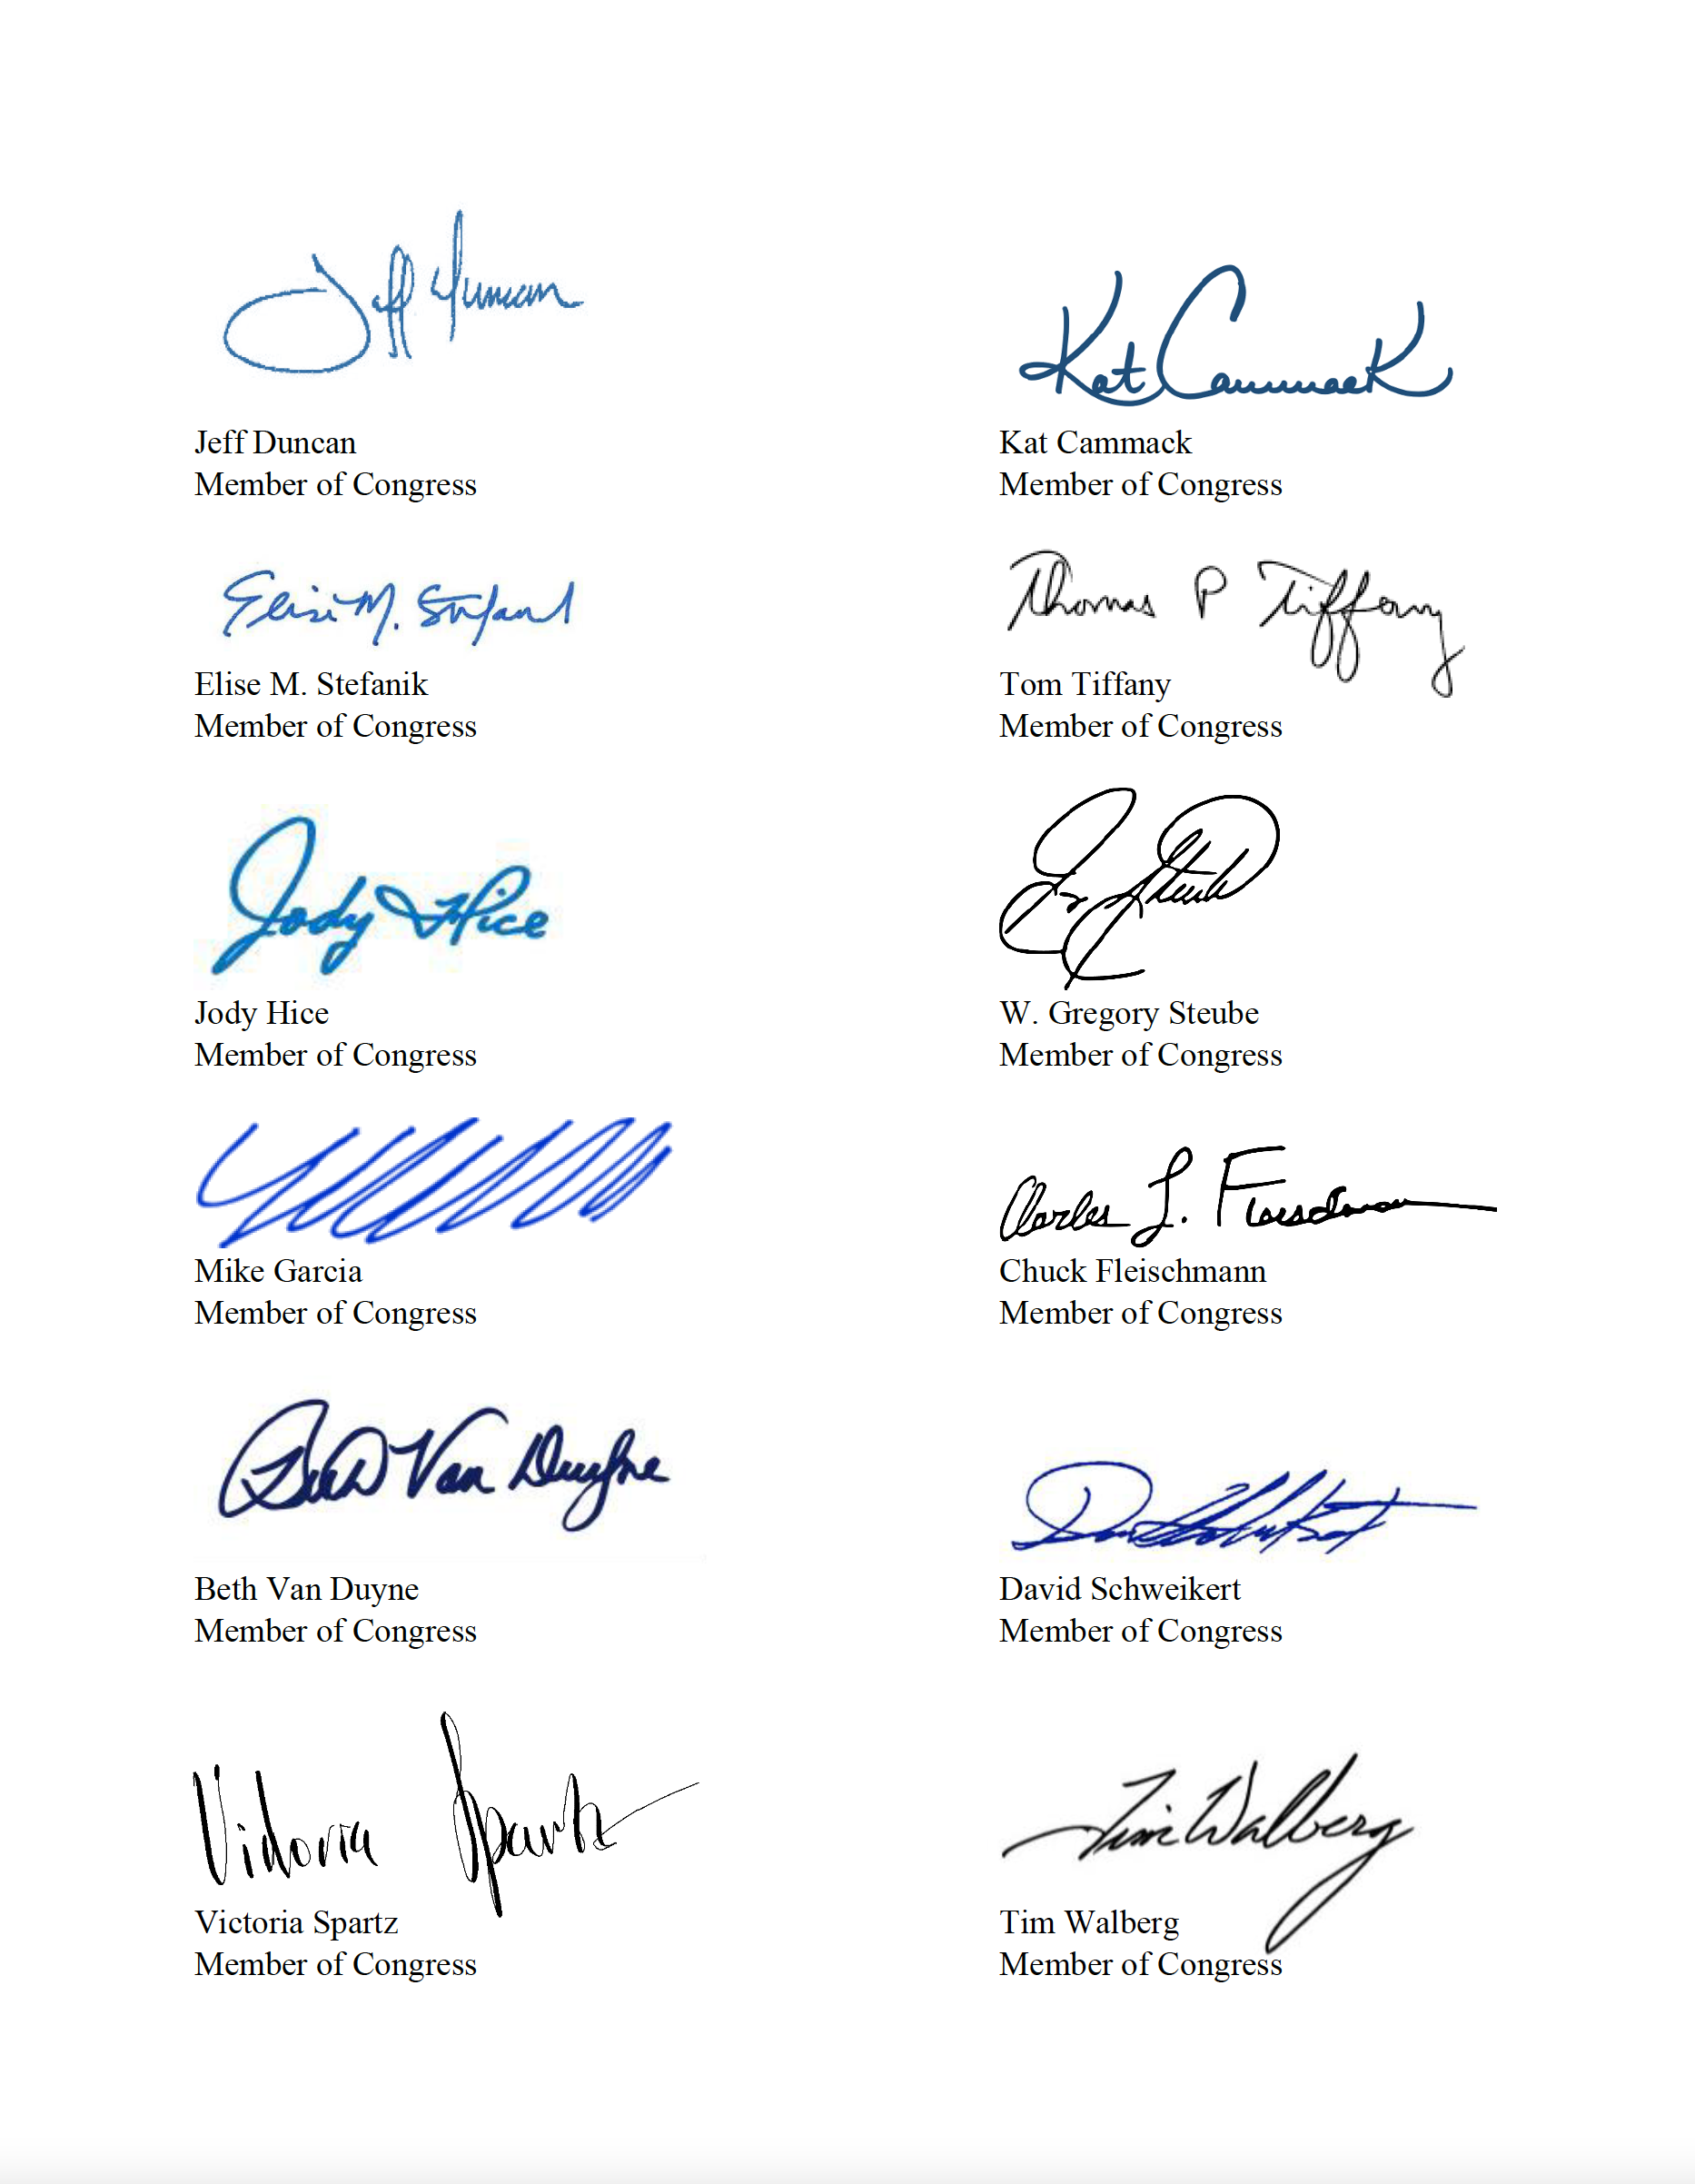 Jeff Duncan
Kat Cammack
Jeff Duncan
Member of Congress
Kat Cammack
Member of Congress
Elise M. Stefanik
Thomas P Tiffany
Elise M. Stefanik
Member of Congress
Tom Tiffany
Member of Congress
Jody Hice
Jody Hice
Member of Congress
W. Gregory Steube
Member of Congress
Charles L. Fleischmann
Mike Garcia
Member of Congress
Chuck Fleischmann
Member of Congress
Beth Van Duyne
Beth Van Duyne
Member of Congress
David Schweikert
Member of Congress
Victoria Spartz
Tim Walberg
Victoria Spartz
Member of Congress
Tim Walberg
Member of Congress